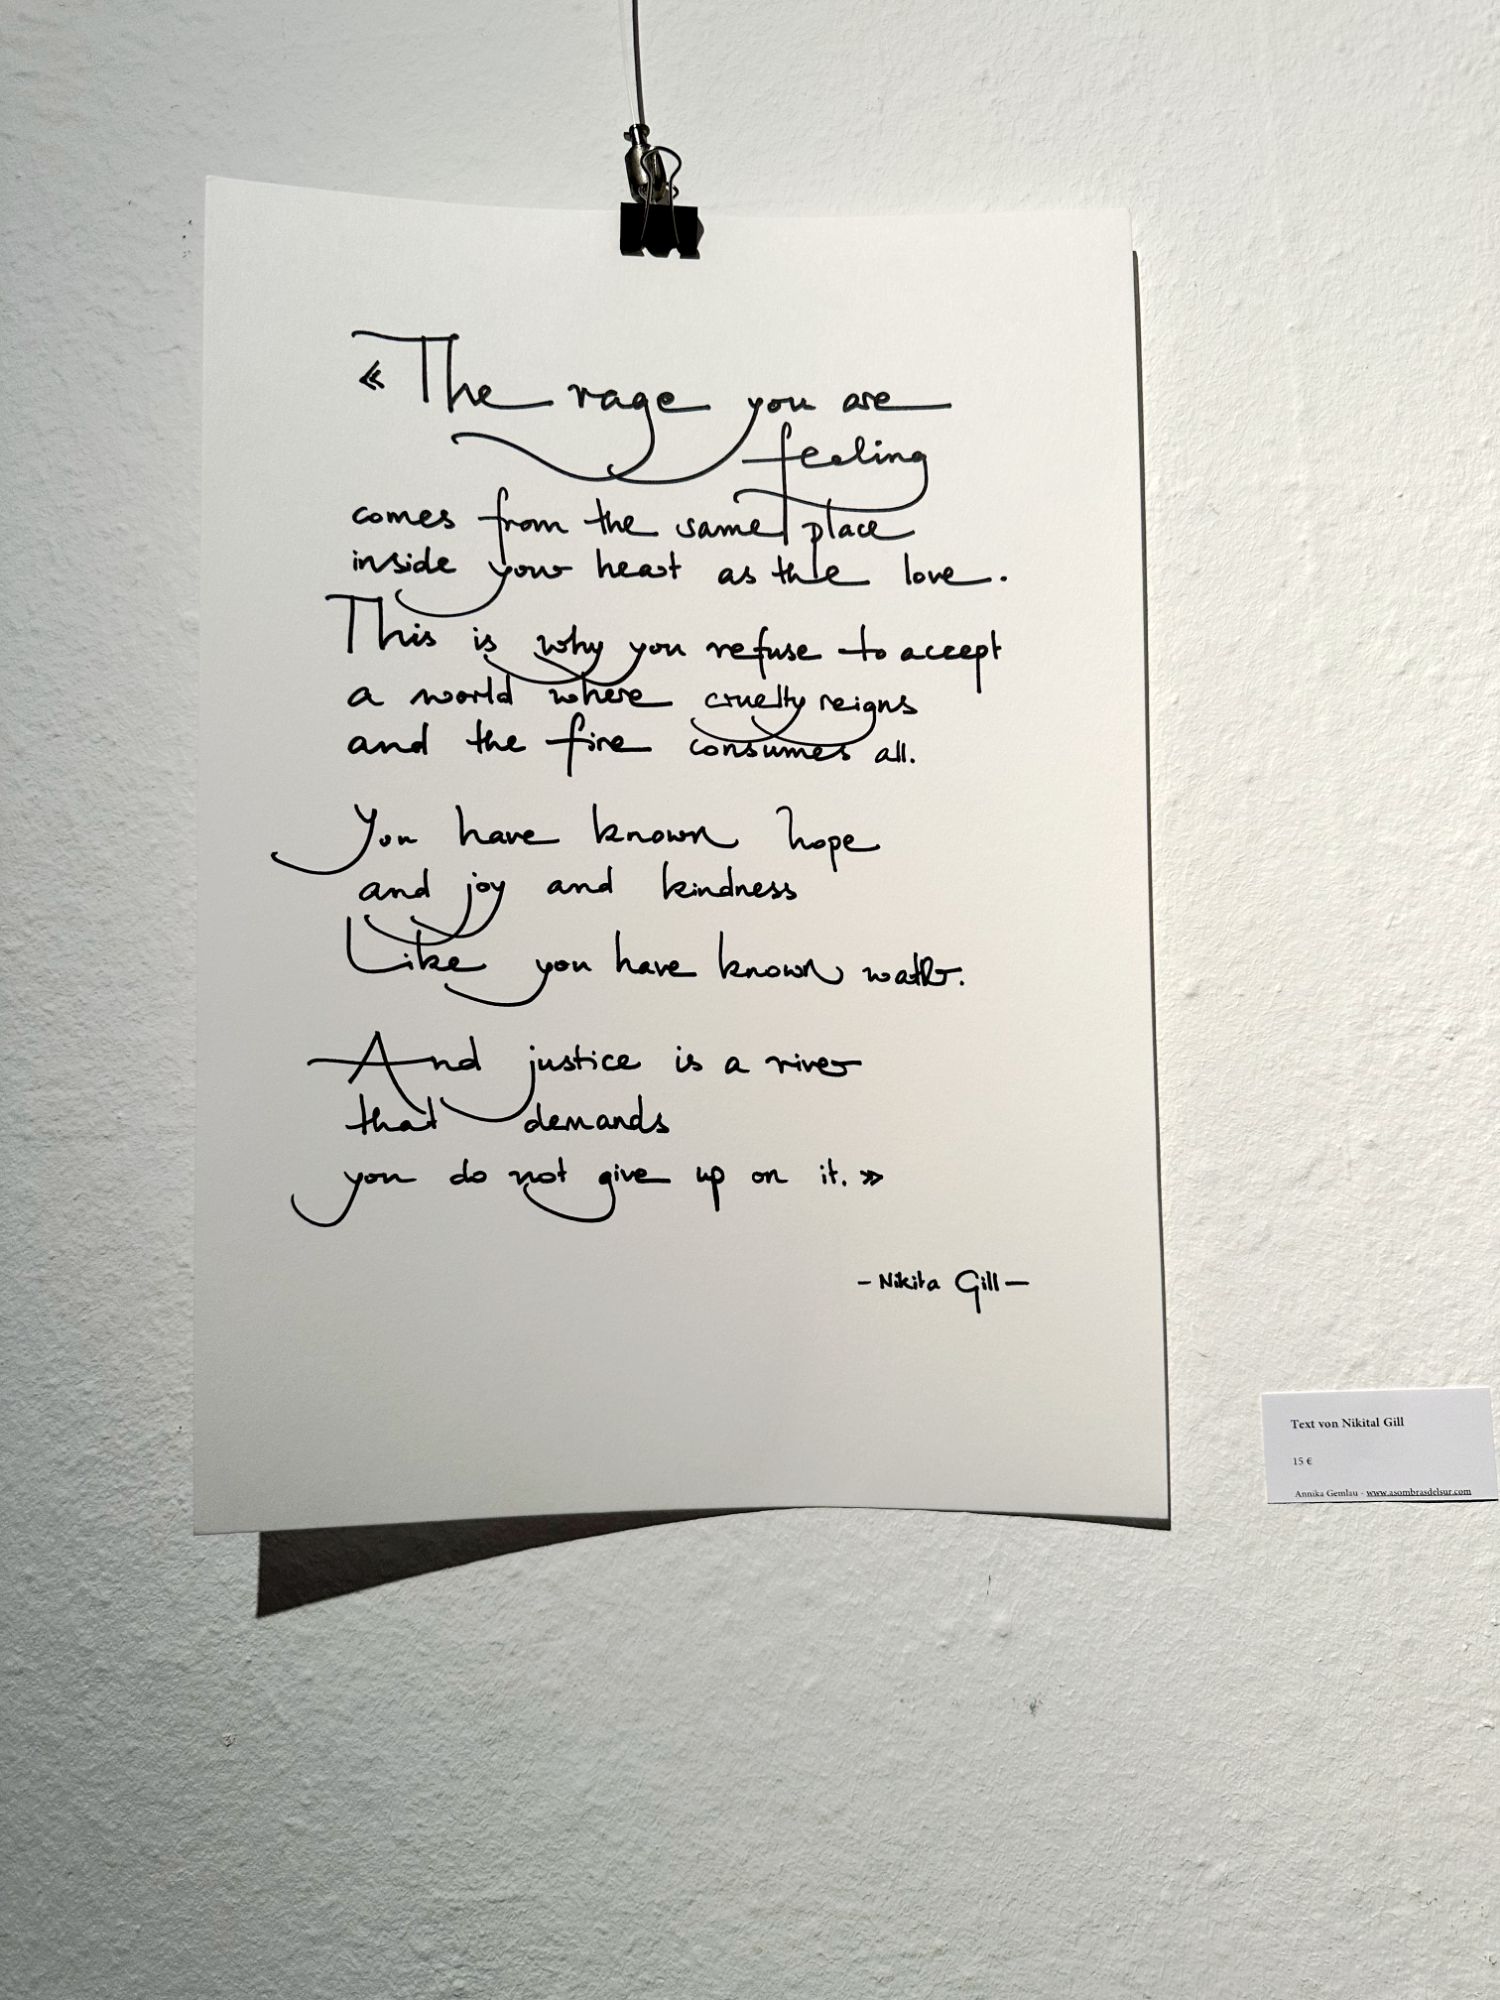 « The rage you are
feeling
comes from the same place
inside your heart as the love.
This is why you refuse to accept
a world where cruelty reigns
and the fire consumes all.
You have known hope
and joy and kindness
Like you have known water.
And justice is a river
that demands
you do not give up on it. »
- Nikita Gill -
Text von Nikital Gill
15 €
Annika Gemlau - www.asombrasdelsur.com